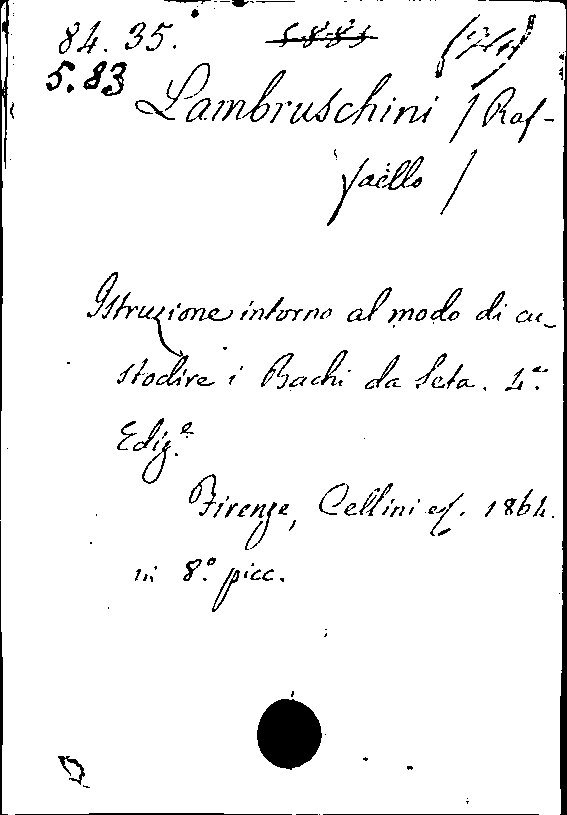 84. 35.
5.83
Lambruschini / Raf-
faello /
Istruzione intorno al modo di cu-
stodire i Bachi da Seta. 4.ª
Ediz.e
Firenze, Cellini ed. 1864.
in 8.º picc.